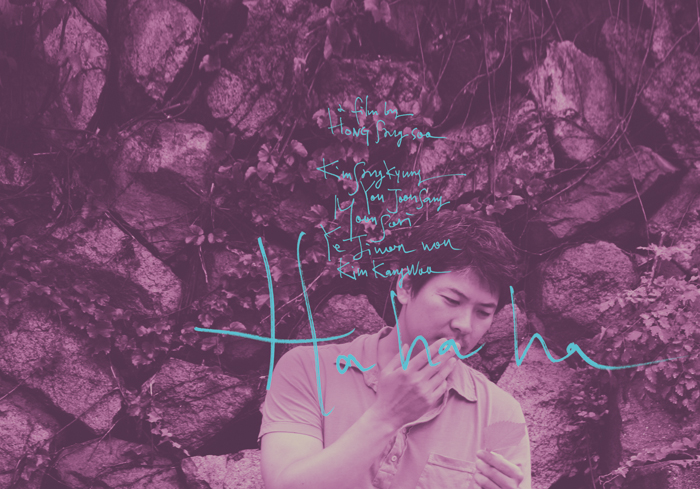 a film by
HONG Sang-soo
Kim Sang Kyung
You Joon Sang
Moon So Ri
Ye Jiwon won
Kim Kang Woo
Ha ha ha